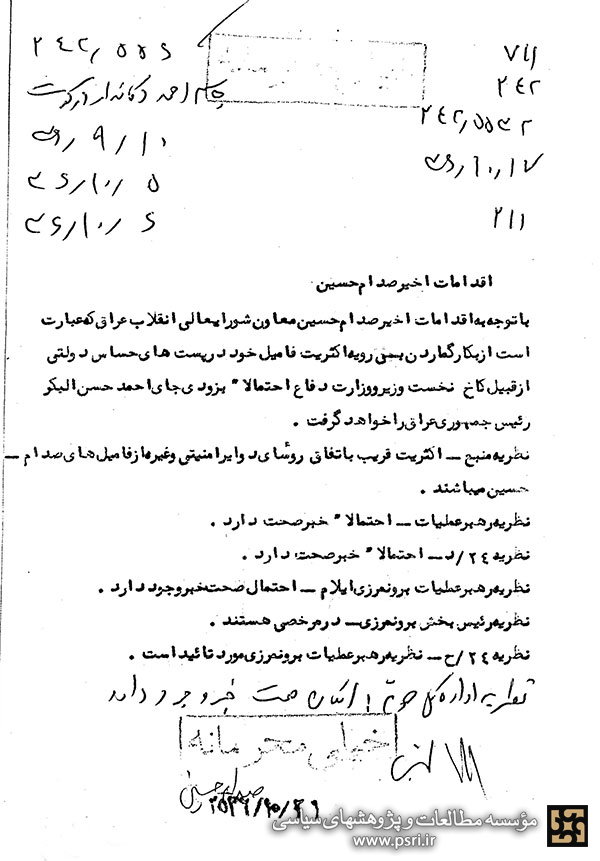 ۷۸۱
۲۴۲
۲۱۱
اقدامات اخیر صدام حسین
باتوجه به اقدامات اخیر صدام حسین معاون شورایعالی انقلاب عراق که عبارت
است از بکار گماردن بیرویه اکثریت فامیل خود در پست های حساس دولتی
از قبیل کاخ نخست وزیر و وزارت دفاع احتمالا" بزودی جای احمد حسن البکر
رئیس جمهوری عراق را خواهد گرفت .
نظریه منبع ــ اکثریت قریب باتفاق روسای دوایر امنیتی وغیره از فامیل های صدام ــ
حسین میباشند .
نظریه رهبر عملیات ــ احتمالا" خبر صحت دارد .
نظریه ۲۴/د ــ احتمالا" خبر صحت دارد .
نظریه رهبر عملیات برونمرزی ایلام ــ احتمال صحت خبر وجود دارد .
نظریه رئیس بخش برونمرزی ــ درمرخصی هستند .
نظریه ۲۴/ح ــ نظریه رهبر عملیات برونمرزی مورد تائید است .
نظریه اداره کل سوم : امکان صحت خبر وجود دارد
خیلی محرمانه
مؤسسه مطالعات و پژوهشهای سیاسی
www.psri.ir